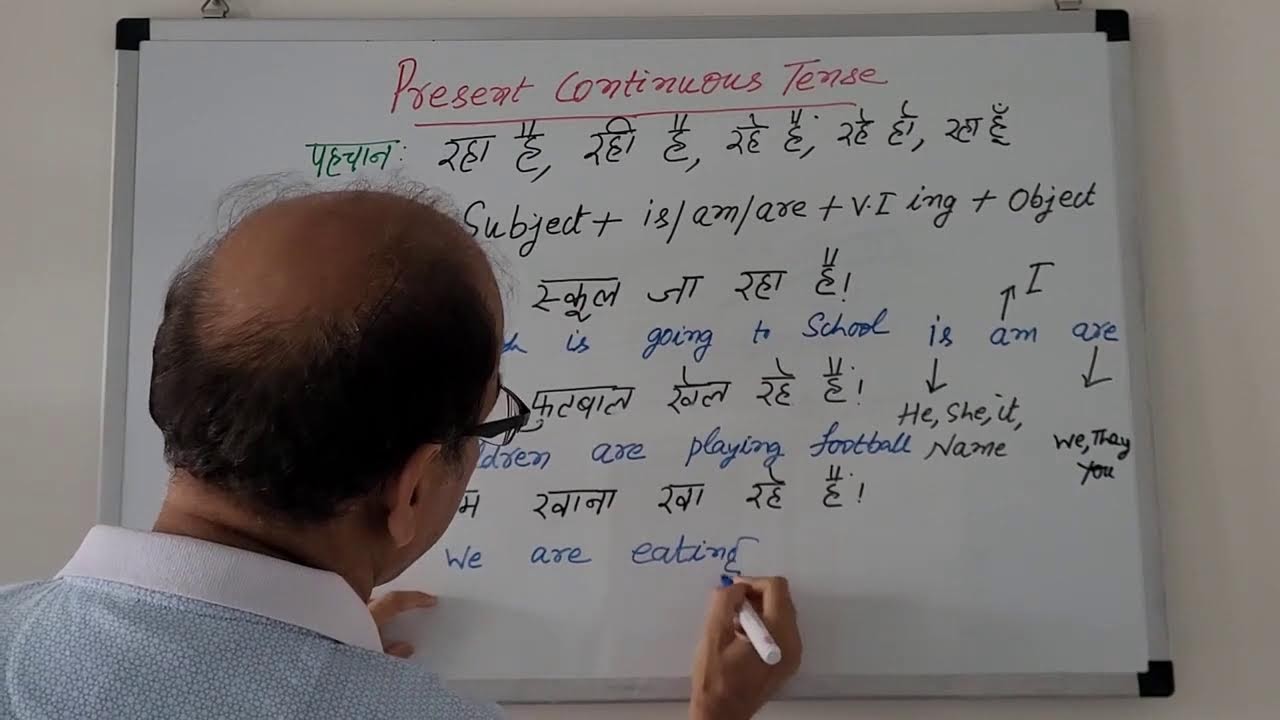 Present Continuous Tense
पहचान: रहा है, रही है, रहे हैं, रहे हो, रहा हूँ
Subject + is/am/are + V.I ing + Object
स्कूल जा रहा है!
I
is going to School
is am are
फुटबाल खेल रहे हैं!
He, She, it,
Name
We, They
You
are playing football
खाना खा रहे हैं!
We are eating